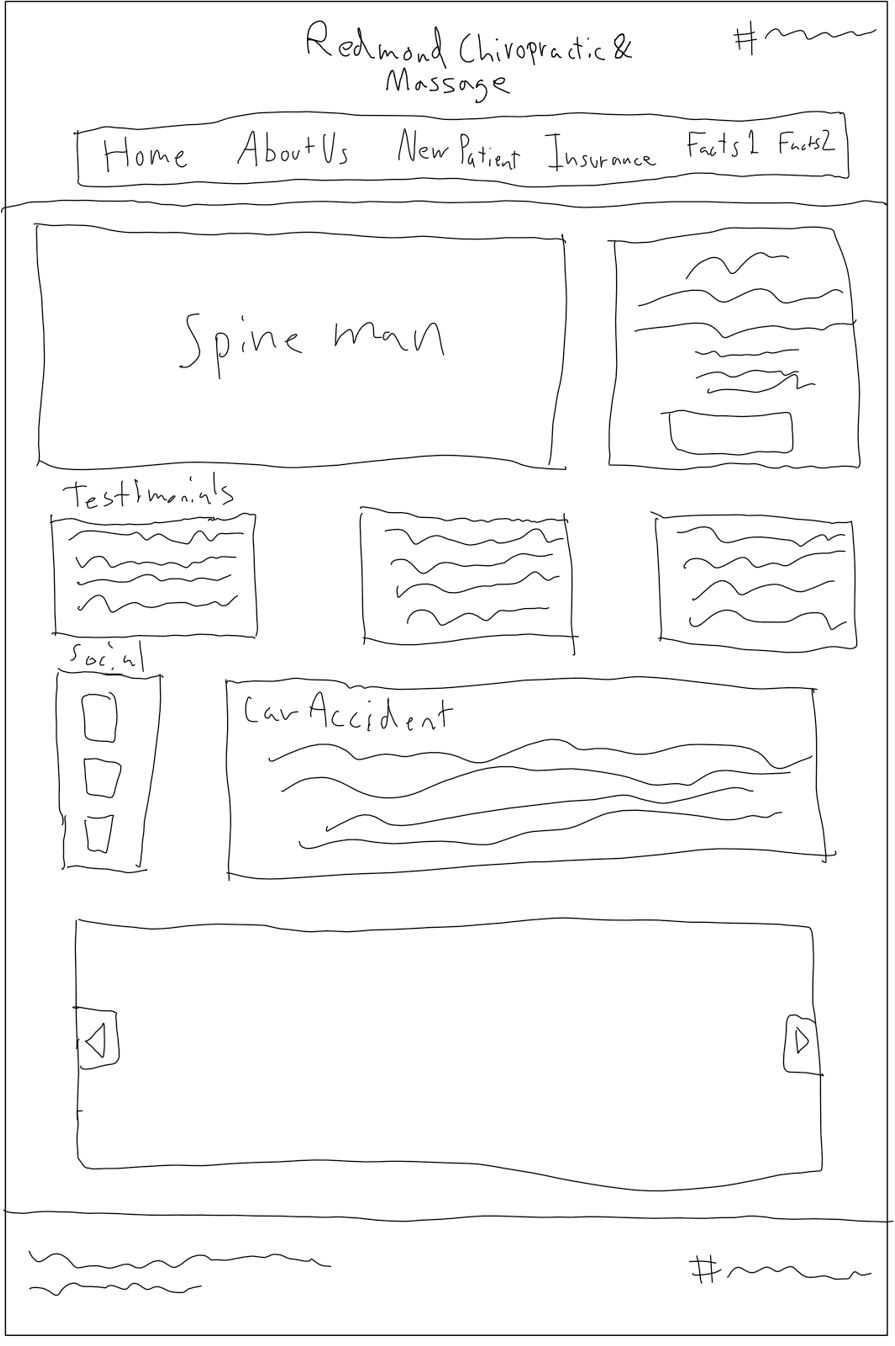 Redmond Chiropractic &
Massage
#
Home About Us New Patient Insurance Facts 1 Facts2
Spine man
Testimonials
Social
Car Accident
#